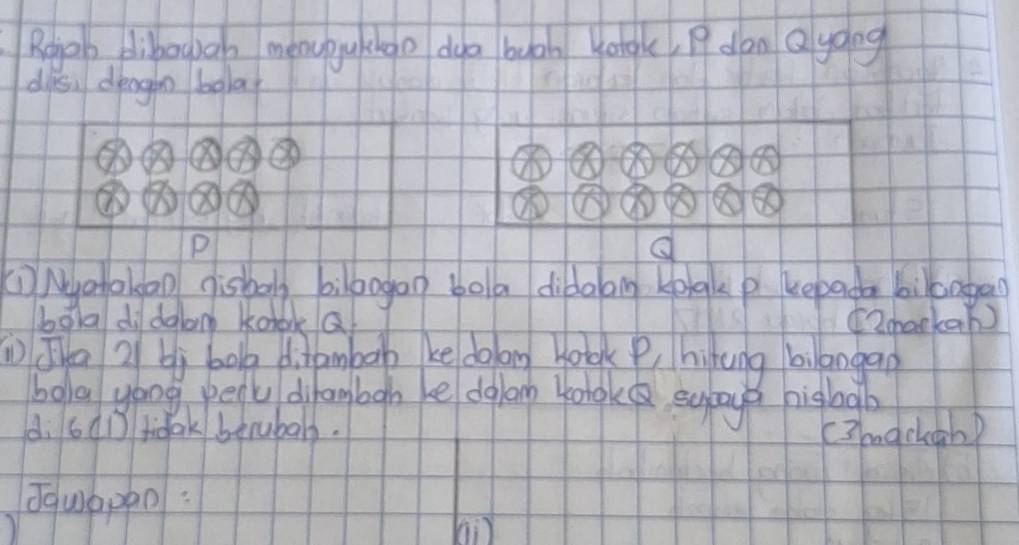 Rajah dibawah menunjukkan dua buah kotak, P dan Q yang
diisi dengan bola.
P
Q
(i) Nyatakan nisbah bilangan bola didalam kotak P kepada bilangan
bola di dalam kotak Q.
(2 markah)
ii) Jika 21 bj bola ditambah ke dalam kotak P, hitung bilangan
bola yang perlu ditambah ke dalam kotak Q supaya nisbah
di 6(i) tidak berubah.
(3 markah)
Jawapan :
)
(ii)